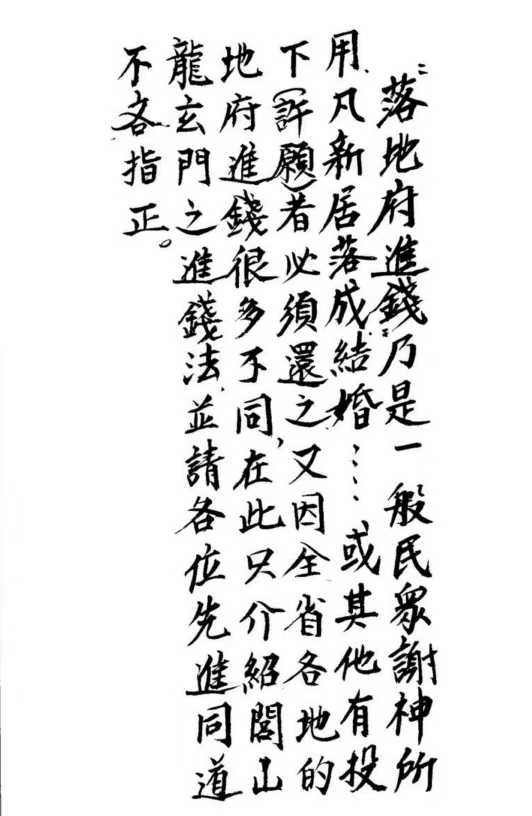 “落地府進錢”乃是一般民眾謝神所
用、凡新居落成、結婚……、或其他有投
下(許願)者必須還之又因全省各地的
地府進錢很多不同，在此只介紹閭山
龍玄門之進錢法、並請各位先進同道
不各指正。